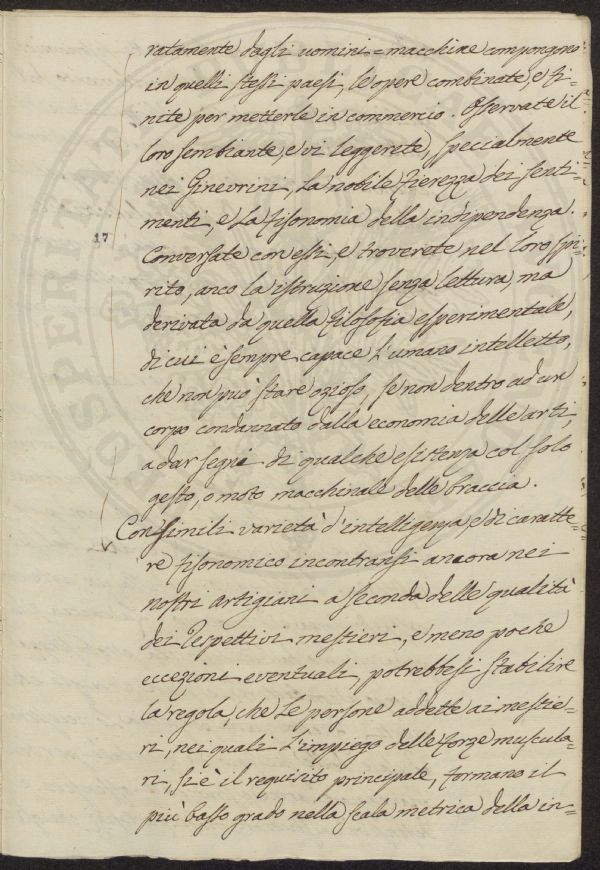 ratamente dagli uomini = macchine compongono
in quelli stessi paesi, le opere combinate, e fi-
nite per metterle in commercio. Osservate il
loro sembiante, e vi leggerete, specialmente
nei Ginevrini, la nobile fierezza dei senti-
menti, e la fisonomia della indipendenza.
17
Conversate con essi, e troverete nel loro spi-
rito, anco la istruzione senza lettura, ma
derivata da quella filosofia esperimentale,
di cui è sempre capace l'umano intelletto,
che non può stare ozioso, se non dentro ad un
corpo condannato dalla economia delle arti,
a dar segni di qualche esistenza col solo
gesto, o moto macchinale delle braccia.
Consimili varietà d'intelligenza, e di caratte-
re fisonomico incontransi ancora nei
nostri artigiani a seconda delle qualità
dei respettivi mestieri, e meno poche
eccezioni eventuali, potrebbesi stabilire
la regola, che le persone addette ai mestie-
ri, nei quali l'impiego delle forze muscula-
ri, si è il requisito principale, formano il
più basso grado nella scala metrica della in-
PROSPERITATI